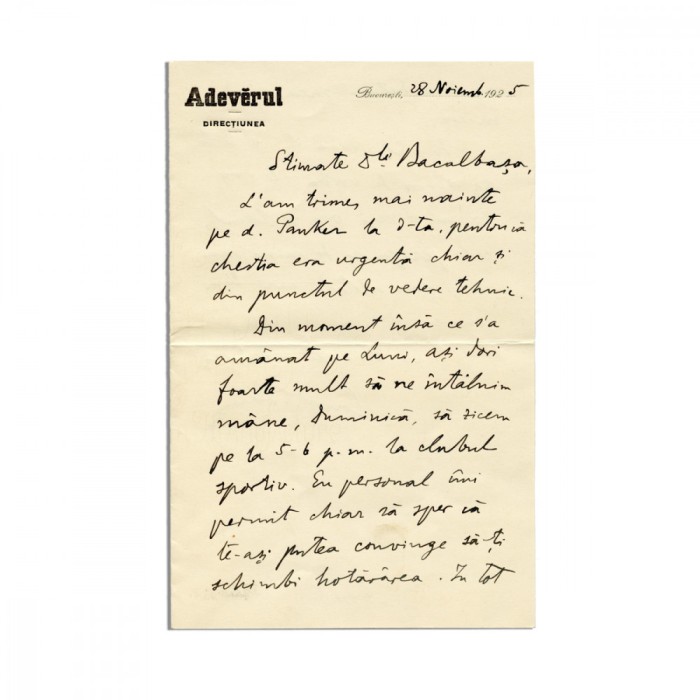 Adevĕrul
DIRECȚIUNEA
București, 28 Noiemb. 1925
Stimate Dle Bacalbașa,
L'am trimes mai nainte
pe d. Pauker la d-ta, pentru că
chestia era urgentă chiar și
din punctul de vedere tehnic.
Din moment însă ce s'a
amânat pe Luni, ași dori
foarte mult să ne întâlnim
mâne, Duminică, să zicem
pe la 5-6 p.m. la clubul
sportiv. Eu personal îmi
permit chiar să sper că
te-ași putea convinge să-ți
schimbi hotărârea. In tot